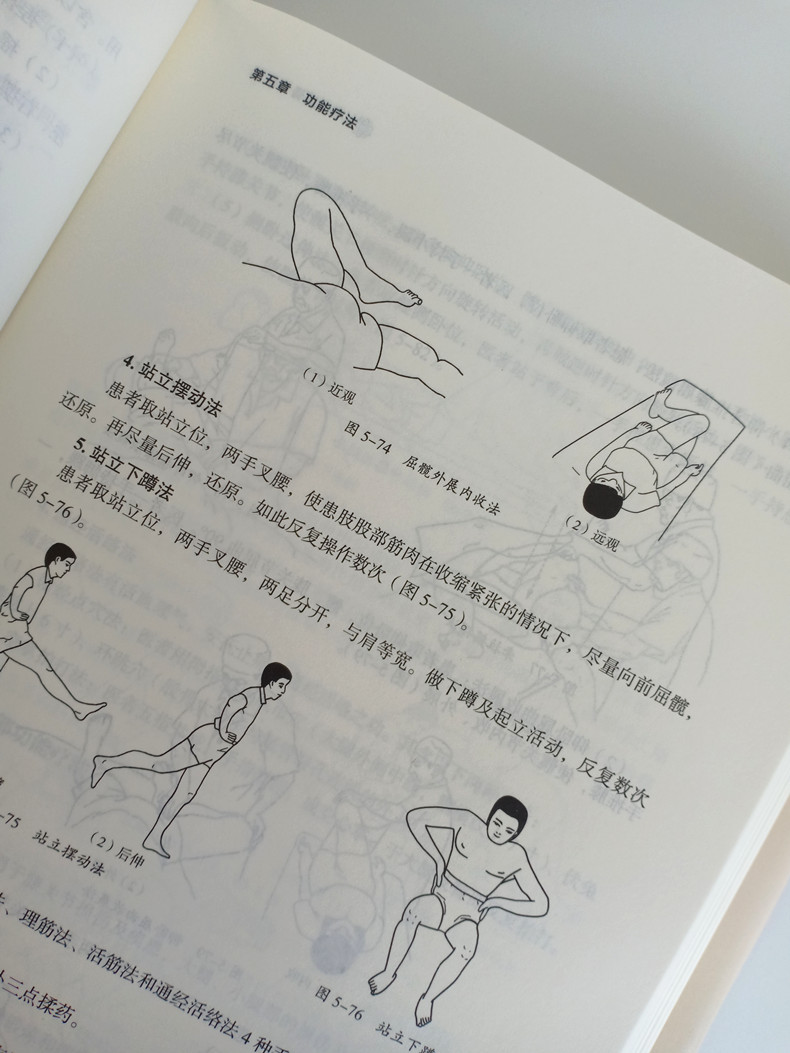 第五章 功能疗法
(1)近观
(2)远观
图 5-74 屈髋外展内收法
4. 站立摆动法
患者取站立位，两手叉腰，使患肢股部筋肉在收缩紧张的情况下，尽量向前屈髋，
还原。再尽量后伸，还原。如此反复操作数次(图 5-75)。
5. 站立下蹲法
患者取站立位，两手叉腰，两足分开，与肩等宽。做下蹲及起立活动，反复数次
(图 5-76)。
(2)后伸
-75 站立摆动法
图 5-76 站立下蹲
、理筋法、活筋法和通经活络法 4 种
三点揉药。